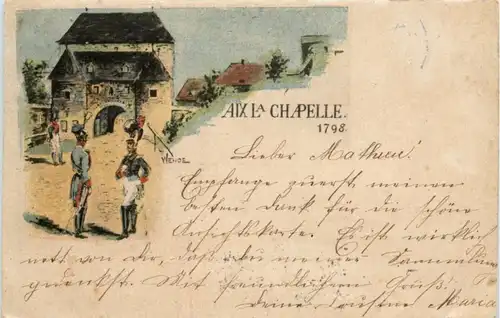 AIX LA CHAPELLE.
1798
WENDE
Lieber Mathieu!
Empfange zuerst meinen
besten Dank für die schöne
Ansichtskarte. Es ist wirklich
nett von Dir, daß du meiner Sammlung
gedenkst. Mit freundlichem Gruß!
Deine Maria